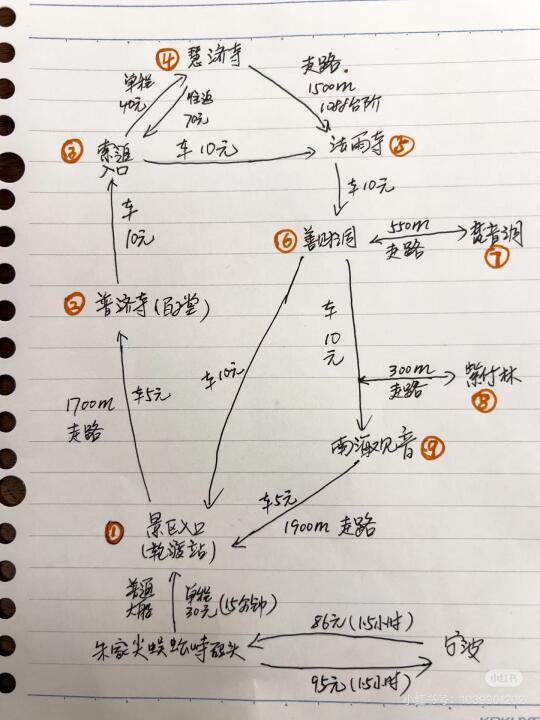 ④ 慧济寺
走路.
1500m
1088台阶
单程
40元
往返
70元
③ 索道
入口
车 10元
法雨寺 ⑤
车
10元
车10元
⑥ 善财洞
550m
走路
梵音洞
⑦
② 普济寺(
车10元
车
10元
300m
走路
紫竹林
⑧
1700m
走路
车5元
南海观音 ⑨
① 景区入口
车5元
1900m 走路
普通
单程
30元(15分钟)
朱家尖蜈蚣峙码头
86元(1.5小时)
宁波
95元(1.5小时)
小红书
小红书号:1039901202